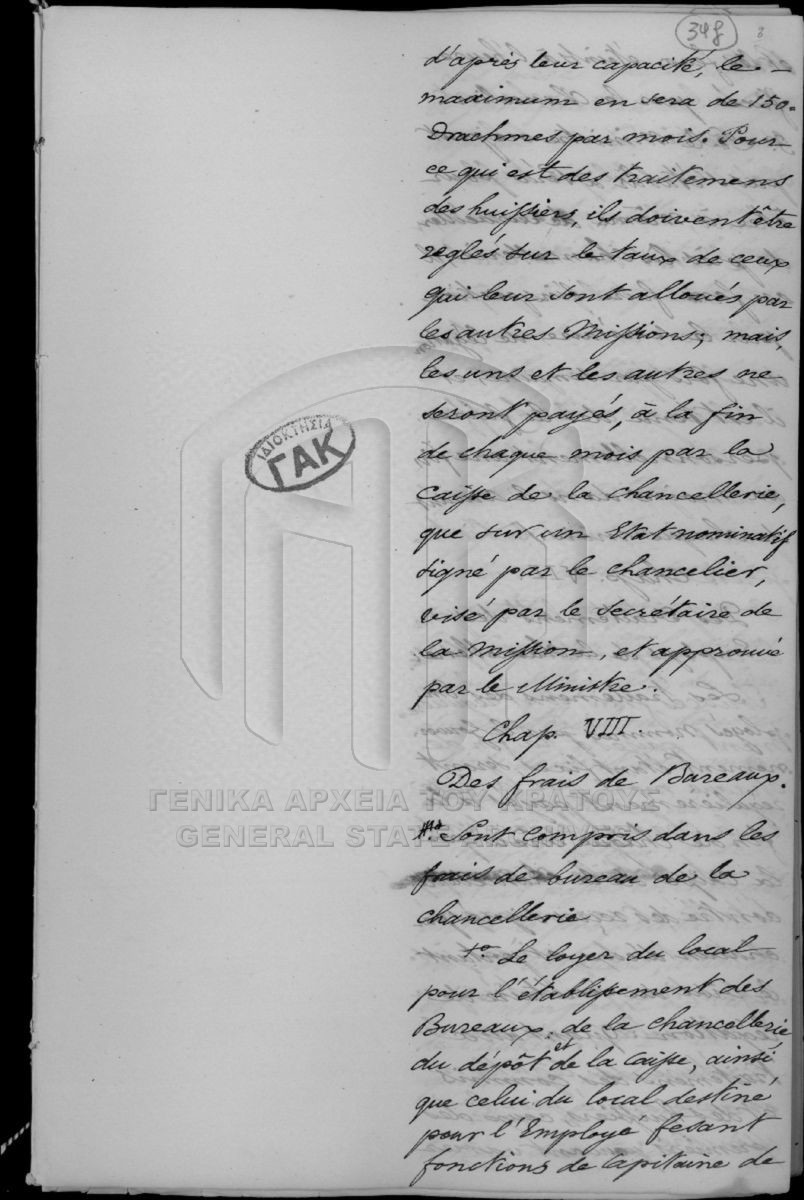 348
d'après leur capacité, le
maximum en sera de 150
Drachmes par mois. Pour
ce qui est des traitemens
des huissiers, ils doivent être
reglés sur le taux de ceux
qui leur sont alloués par
les autres Missions; mais,
les uns et les autres ne
seront payés, à la fin
de chaque mois par la
Caisse de la chancellerie,
que sur un Etat nominatif
signé par le chancelier,
visé par le secrétaire de
la Mission, et approuvé
par le Ministre.
Chap. VIII.
Des frais de Bureaux.
Sont compris dans les
frais de bureau de la
chancellerie
1o. Le loyer du local
pour l'établissement des
Bureaux, de la chancellerie
du dépôt et de la Caisse, ainsi
que celui du local destiné
pour l'Employé fesant
fonctions de Capitaine de
ΙΔΙΟΚΤΗΣΙΑ
ΓΑΚ
ΓΕΝΙΚΑ ΑΡΧΕΙΑ ΤΟΥ ΚΡΑΤΟΥΣ
GENERAL STATE ARCHIVES